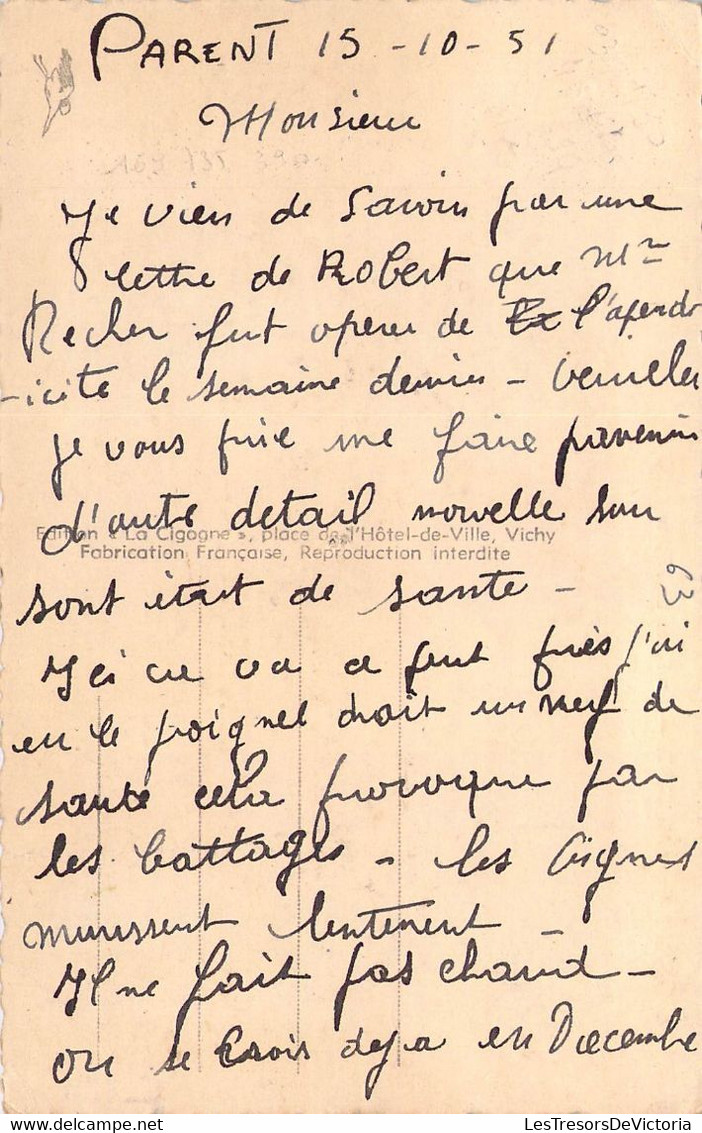 PARENT 15-10-51
Monsieur
Je vien de savoir par une
lettre de Robert que Mr
Recher fut operer de l'apendi
-icite le semaine dernier - Veuiller
je vous prie me faire parvenir
d'autre detail nouvelle sur
Edition « La Cigogne », place de l'Hôtel-de-Ville, Vichy
Fabrication Française, Reproduction interdite
sont état de sante -
63
Ici ca va a peut près j'ai
eu le poignet droit un nerf de
sauté cela provoque par
les battages - les vignes
murissent lentement -
Il ne fait pas chaud -
on se crois deja en Decembre
LesTresorsDeVictoria